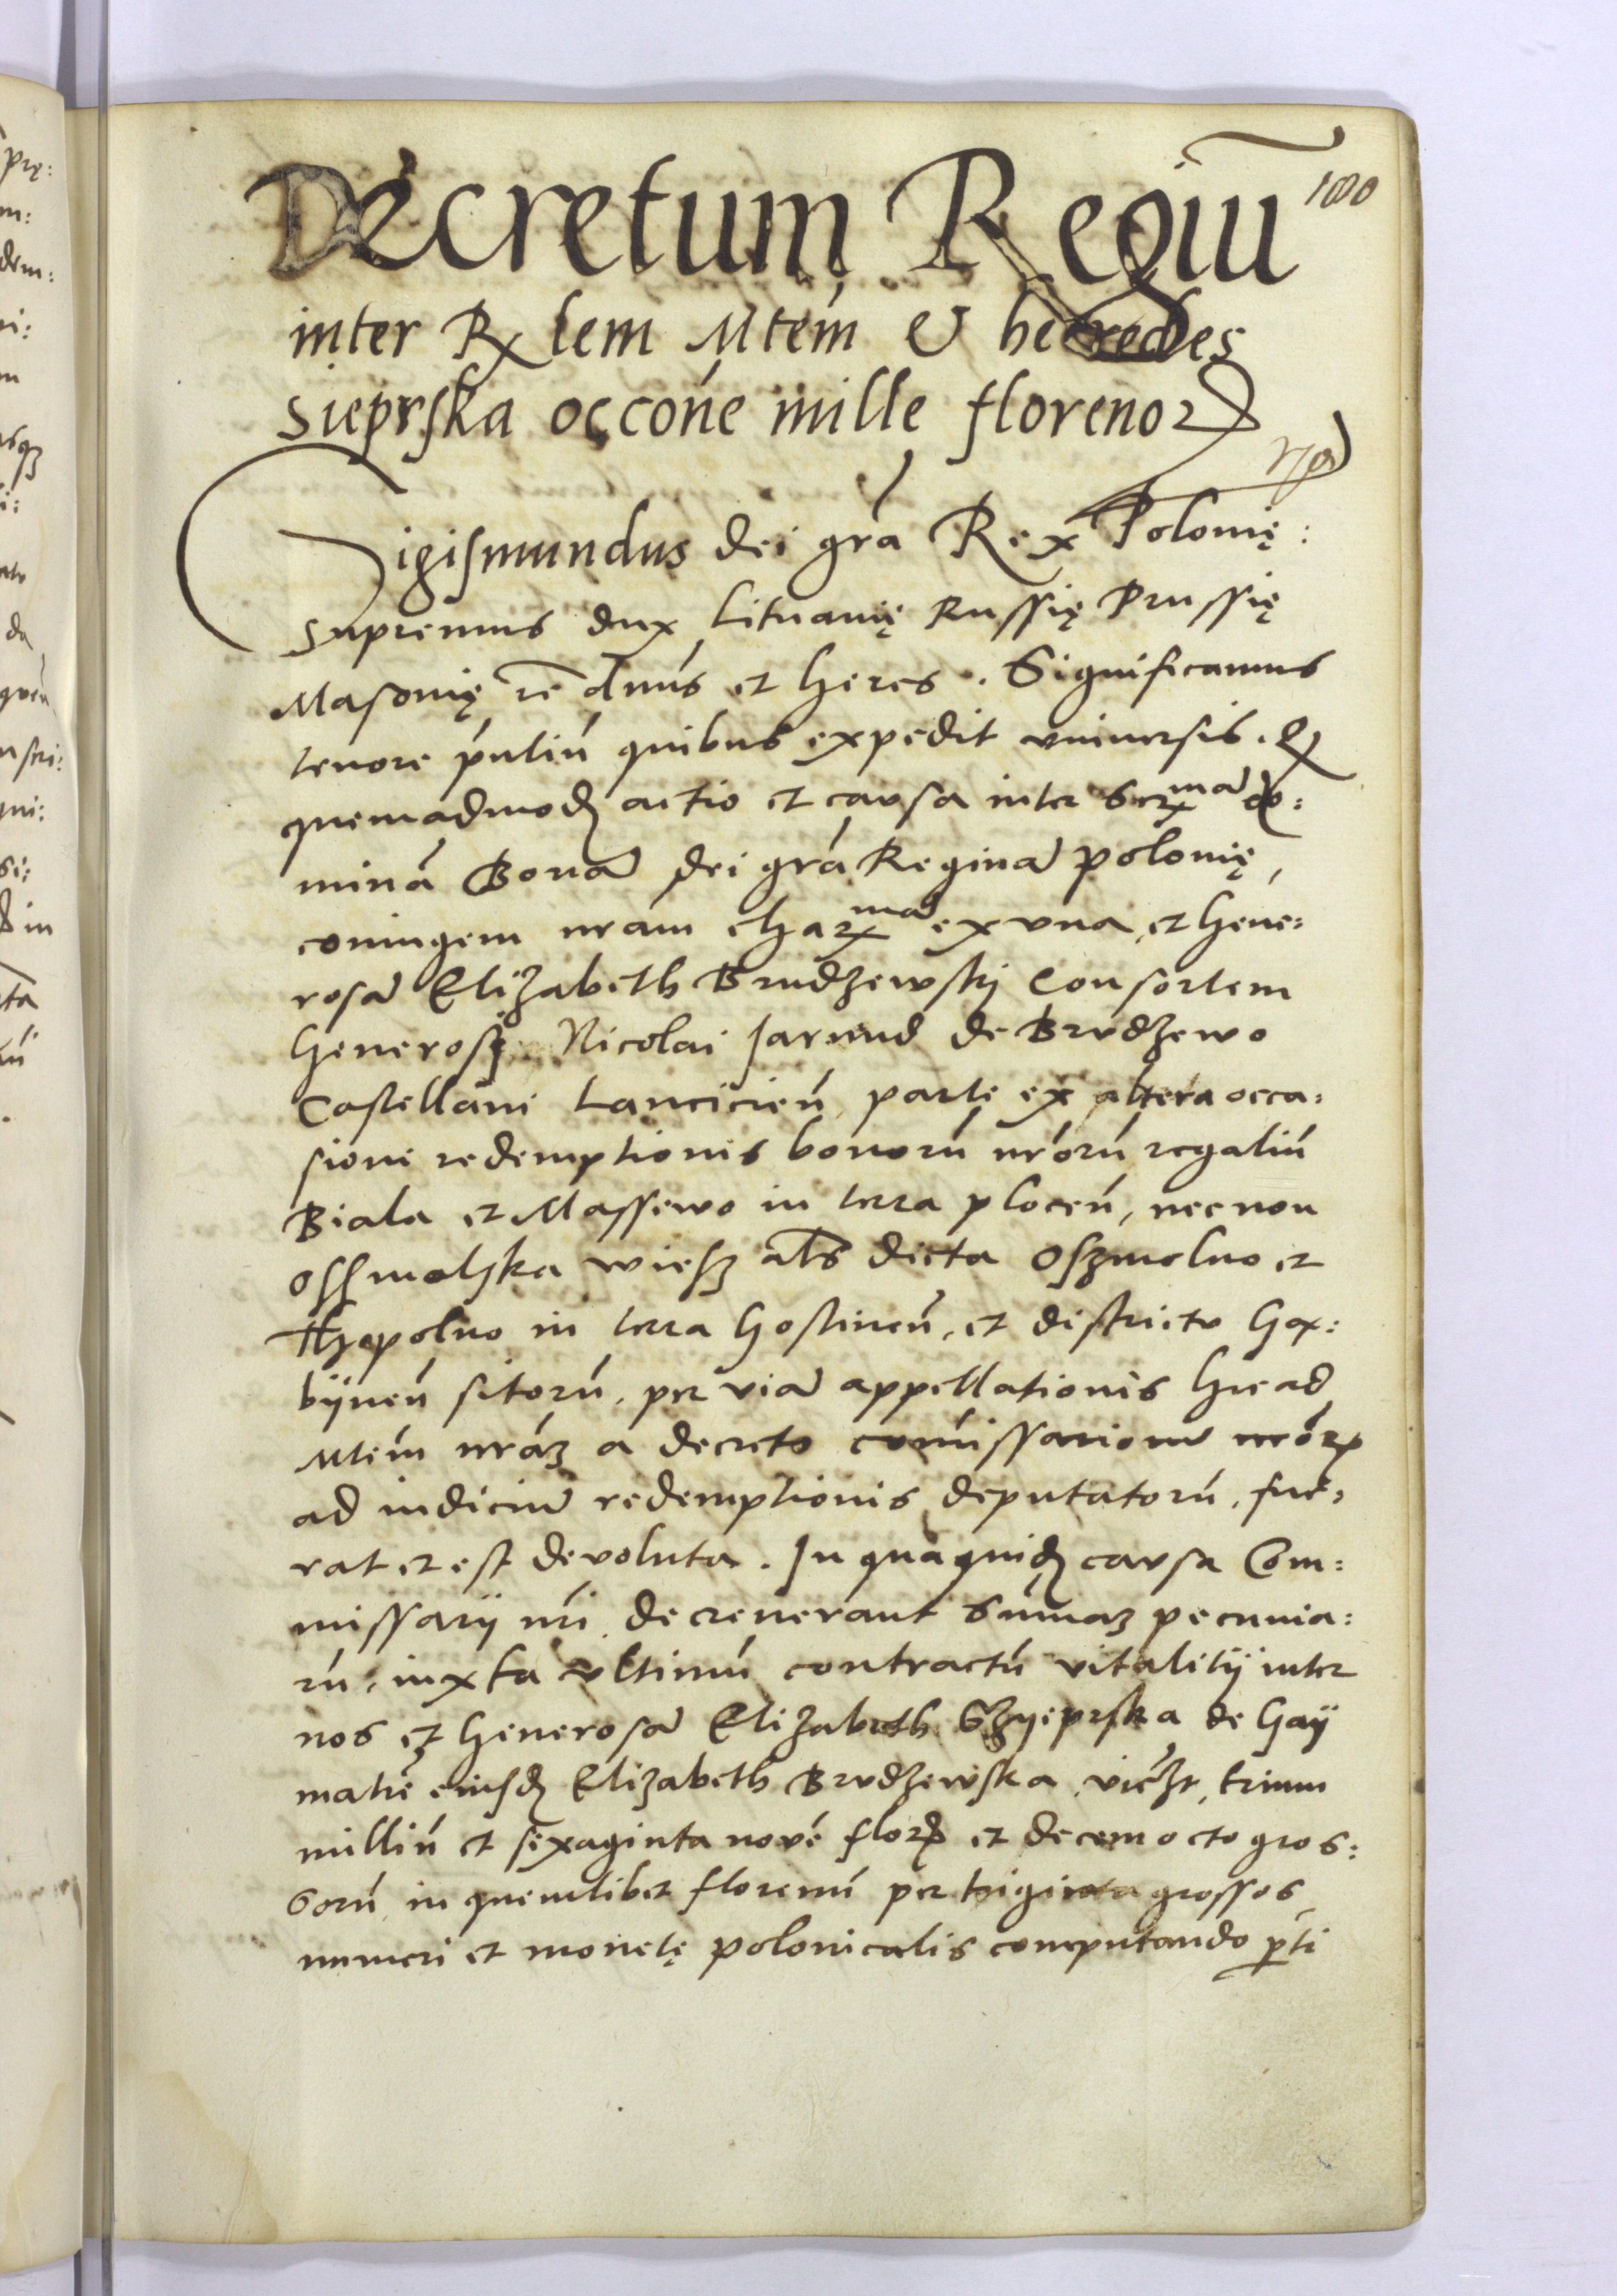 Decretum Regiu̅ 180
inter Rlem Mtem̅ & heredes
sieprska occone̅ mille florenor
Sigismundus dei gra̅ Rex Polonię:
supremus dux Lituanię Russię Prussię
Masouię rc̅ dnus̅ et heres. Significamus
tenore pn̅tiu̅ quibus expedit vniuersis. Q
quemadmod actio et causa inter Serma̅ do:
mina̅ Bona̅ dei gra̅ Regina̅ polonię,
coniugem nram̅ charma̅ ex vna et Gene:
rosa̅ Elizabeth Brudzewskÿ Consortem
Generosę Nicolai Jarand de Brudzewo
Castellani Lancicien̅ parte ex altera occa:
sione redemptionis bonoru̅ nroru̅ regaliu̅
Biala et Massewo in terra plocen̅, necnon
Osszmolska wiesz als̅ dicta Oszmolno et
Thopolno in terra Gostinen̅, et districtu Gom:
bÿnen̅ sitoru̅, per via̅ appellationis huc ad
Mtem̅ nraz̅ a decreto comissarioru̅ nror̅
ad iudiciu̅ redemptionis deputatoru̅, fue:
rat et est deuoluta. In qua quid causa Com:
missarÿ nri̅ decreuerant Sum̅az pecunia:
ru̅, iuxta vltimu̅ contractu̅ vitalitÿ inter
nos et Generosa̅ Elizabeth Szyeprska de Gaÿ
matre̅ eiusd Elizabeth Brudzewska, vicz̅t, trium
milliu̅ et sexaginta noue̅ flor et decem octo gros:
soru̅ in quemlibet florenu̅ per triginta grossos
numeri et monetę polonicalis computando pti̅